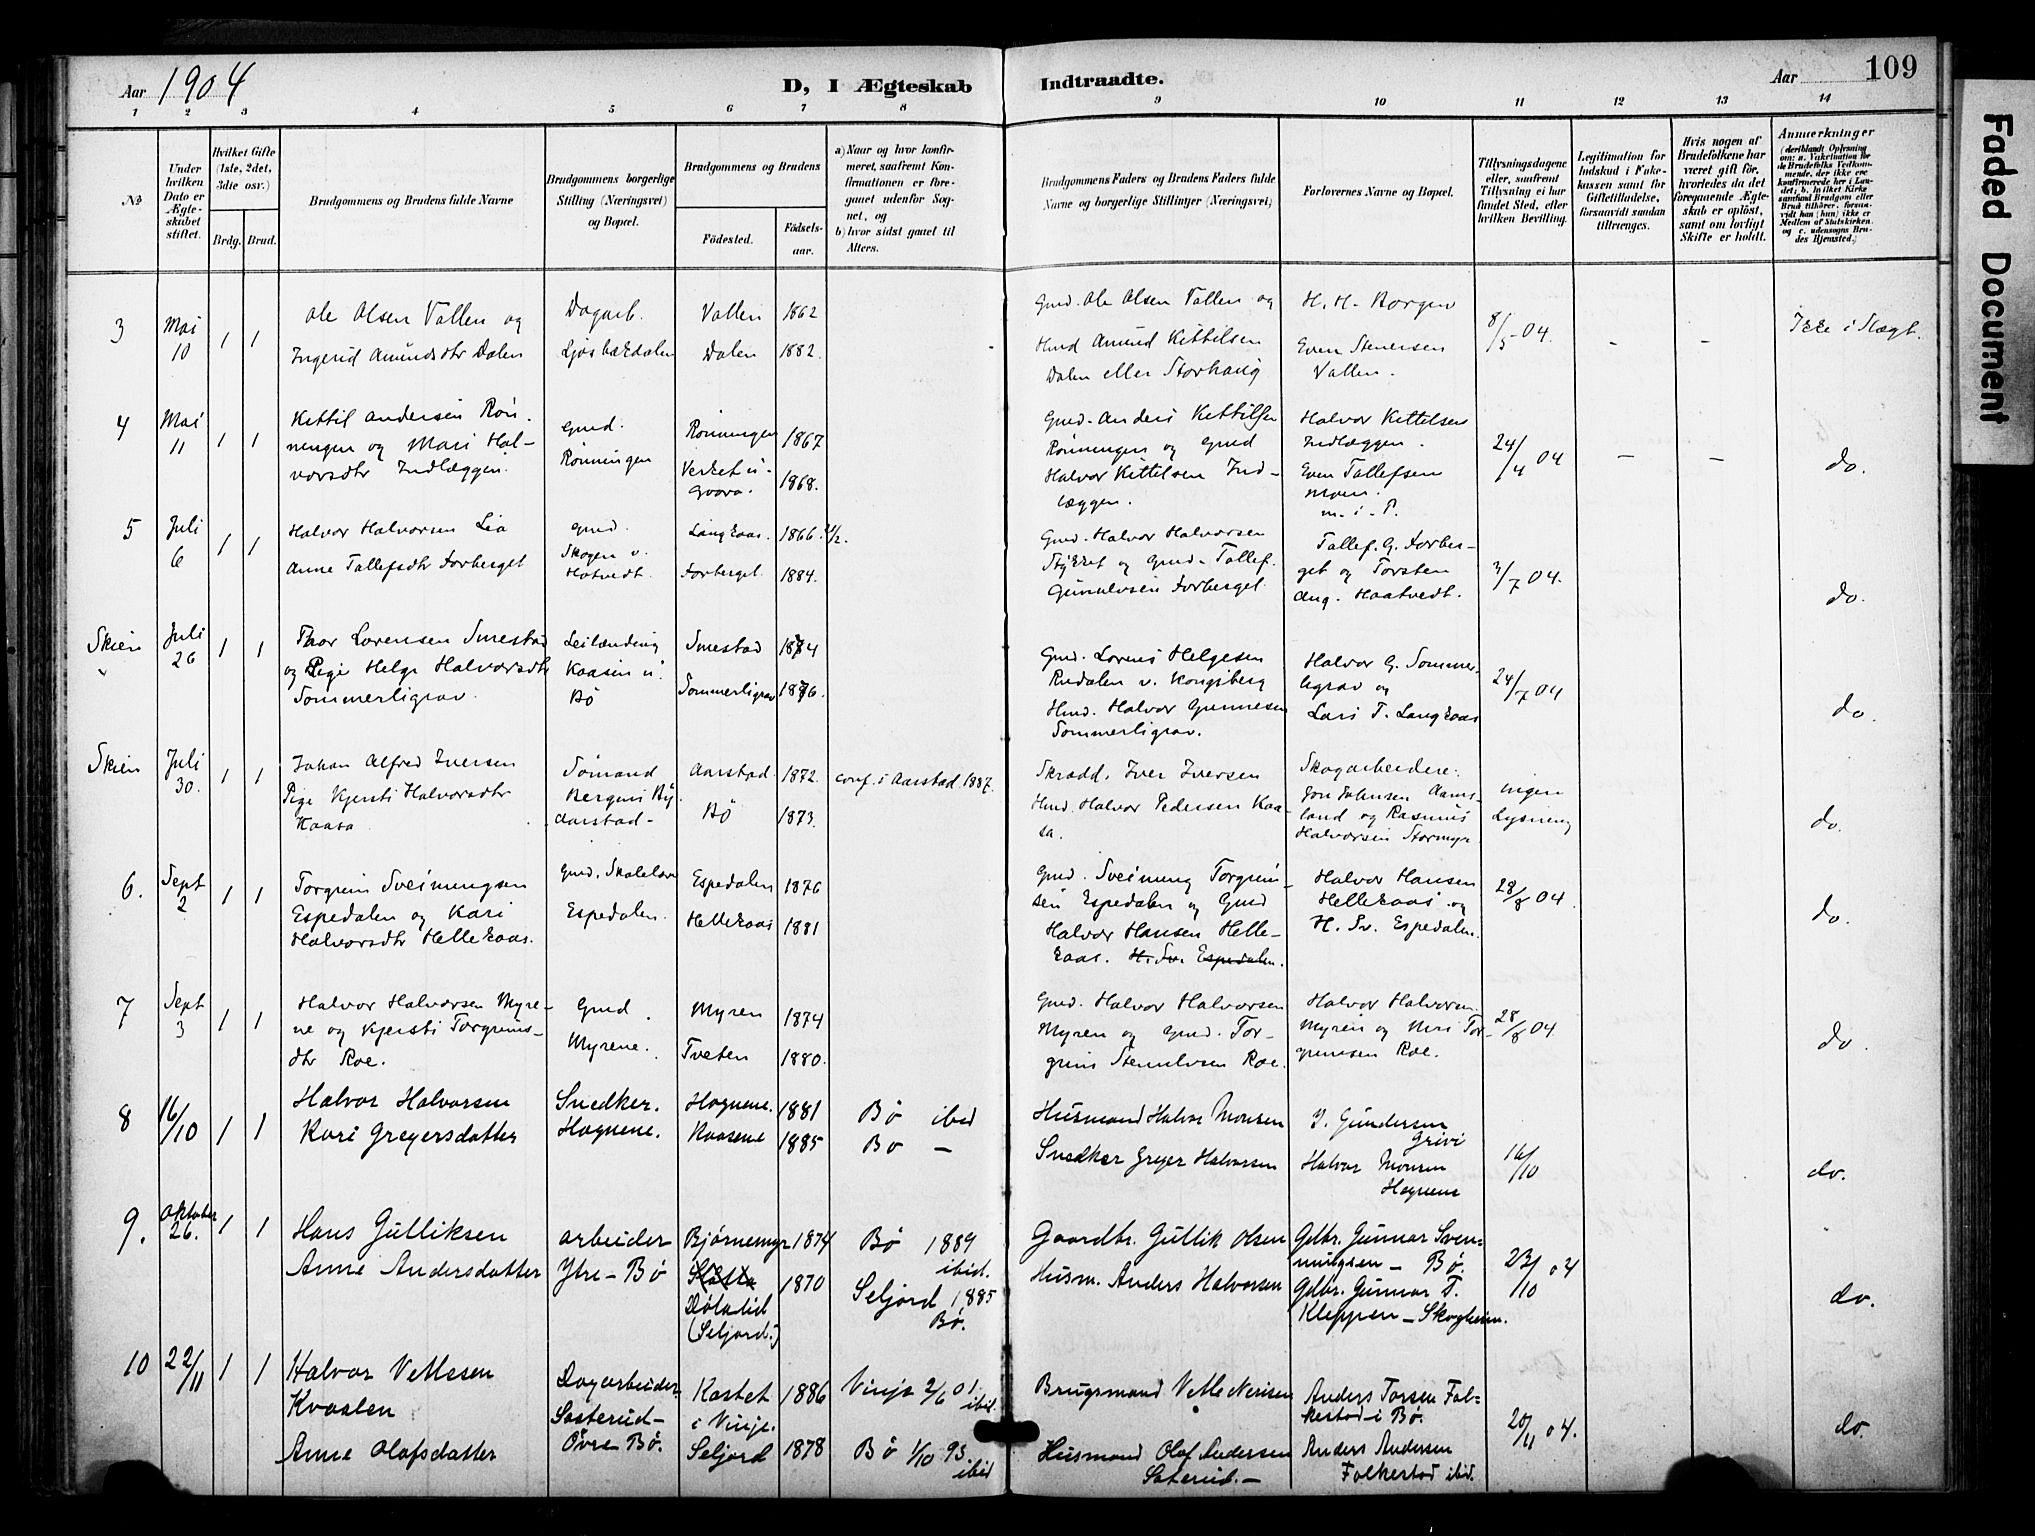 Aar 1904
D, I Ægteskab Indtraadte.
Aar
109
1 2 3 4 5 6 7 8 9 10 11 12 13 14
No
Under hvilken Dato er Ægteskabet stiftet.
Hvilket Gifte (1ste, 2det, 3die osv.)
Brdg. Brud.
Brudgommens og Brudens fulde Navne
Brudgommens borgerlige Stilling (Næringsvei) og Bopæl.
Brudgommens og Brudens
Fødested.
Fødselsaar.
a) Naar og hvor konfirmeret, saafremt Konfirmationen er foregaaet udenfor Sognet, og
b) hvor sidst gaaet til Alters.
Brudgommens Faders og Brudens Faders fulde Navne og borgerlige Stillinger (Næringsvei)
Forlovernes Navne og Bopæl.
Tillysningsdagene eller, saafremt Tillysning ei har fundet Sted, efter hvilken Bevilling.
Legitimation for Indskud i Enkekassen samt for Giftetilladelse, forsaavidt saadan tiltrænges.
Hvis nogen af Brudefolkene har været gift før, hvorledes da det foregaaende Ægteskab er opløst, samt om lovligt Skifte er holdt.
Anmerkninger
(deriblandt Oplysning om: a. Vakcination for de Brudefolks Vedkommende, der ikke ere konfirmerede her i Landet; b. hvilket Kirkesamfund Brudgom eller Brud tilhører, forsaavidt han (hun) ikke er Medlem af Statskirken, og c. udensogns Brudes Hjemsted.)
3 Mai 10 1 1
Ole Olsen Vallen og
Ingerid Amundsdtr Dalen
Dagarb.
Ljosbækdalen
Vallen 1862
Dalen 1882.
Gmd. Ole Olsen Vallen og
Hmd Amund Kittilsen
Dalen eller Storhaug
H. H. Borgen
Even Stenersen
Vallen.
8/5-04.
- -
Ikke i Slægt.
4 Mai 11 1 1
Kittil Andersen Røn-
ningen og Mari Hal-
vorsdtr Indlæggen.
Gmd.
Rønningen
Rønningen 1867
Verket u. Gvarv. 1868.
Gmd. Anders Kittilsen
Rønningen og Gmd
Halvor Kittilsen Ind-
læggen.
Halvor Kittelsen
Indlæggen.
Even Tallefsen
Moen.
m. i. P.
24/4 04
- -
do.
5 Juli 6 1 1
Halvor Halvorsen Lia
Anne Tallefsdtr Forberget
Gmd.
Skogen v.
Hotvedt.
Langkaas. 1866.
Forberget 1884.
Gmd. Halvor Halvorsen
Stykket og Gmd. Tallef
Gunulvsen Forberget.
Tallef. G. Forber-
get og Torsten
Aug. Haatvedt.
3/7 04.
do.
Skien
Juli 26 1 1
Thor Lorensen Smestad
og Pige Helge Halvorsdtr
Sommerligrav.
Leilænding
Kaasin i
Bø
Smestad 1874
Sommerligrav 1876.
Gmd. Lorens Helgesen
Rudalen v. Kongsberg
Hmd. Halvor Gunnesen
Sommerligrav.
Halvor G. Sommer-
ligrav og
Lars T. Langkaas
24/7 04
do.
Skien
Juli 30. 1 1
Johan Alfred Iversen
Pige Kjersti Halvorsdtr
Kaasa
Sømand
Bergens By
Aarstad-
Aarstad. 1872.
Bø 1873.
conf. i Aarstad 1887.
Skradd. Iver Iversen
Hmd. Halvor Pedersen Kaa-
sa.
Skogarbeidere:
Jon Johnsen Aams-
land og Rasmus
Halvorsen Stormyr
ingen
Lysning
do.
6. Sept 2 1 1
Torgrim Sveinungsen
Espedalen og Kari
Halvorsdtr Hellekaas.
Gmd. Skolelærer
Espedalen.
Espedalen 1876
Hellekaas 1881
Gmd. Sveinung Torgrim-
sen Espedalen og Gmd
Halvor Hansen Helle-
kaas. H. Sv. Espedalen.
Halvor Hansen
Hellekaas og
H. Sv. Espedalen.
28/8 04.
do.
7 Sept 3 1 1
Halvor Halvorsen Myre-
ne og Kjersti Torgrims-
dtr Roe.
Gmd.
Myrene.
Myren 1874
Tveten 1880.
Gmd. Halvor Halvorsen
Myren og Gmd. Tor-
grim Stenulvsen Roe.
Halvor Halvorsen
Myren og Tor-
grimsen Roe.
28/8 04
do.
8 16/10 1 1
Halvor Halvorsen
Kari Greyersdatter
Snedker.
Hognene.
Hognene. 1881
Kaasene 1885
Bø ibid
Bø -
Husmand Halvor Monsen
Snedker Greger Halvorsen
Y. Gundersen
Grivi
Halvor Monsen
Hognene
16/10
do.
9. Oktober 26. 1 1
Hans Gulliksen
Anne Andersdatter
arbeider
Ytre-Bø
Bjørnemyr 1874
Dølalid 1870
(Seljord.)
Bø 1889
ibid.
Seljord 1885
Bø.
Gaardbr. Gullik Olsen
Husm. Anders Halvorsen
Gdbr. Gunnar Svein-
nungsen - Bø.
Gdbr. Gunnar T.
Kleppen - Skogheim.
23/10 04
do.
10 22/11 1 1
Halvor Vetlesen
Kvaalen
Anne Olafsdatter
Dagarbeider
Sasterud-
Övre Bø.
Kastet 1886
i Vinje.
Seljord 1878
Vinje 2/6 01.
ibid.
Bø 1/10 93
ibid
Brugsmand Vetle Nerisen
Husmand Olaf Andersen
Saterud.-
Anders Torsen Fol-
kestad i Bø.
Anders Andersen
Folkestad ibid.
20/11 04.
do.
Faded Document